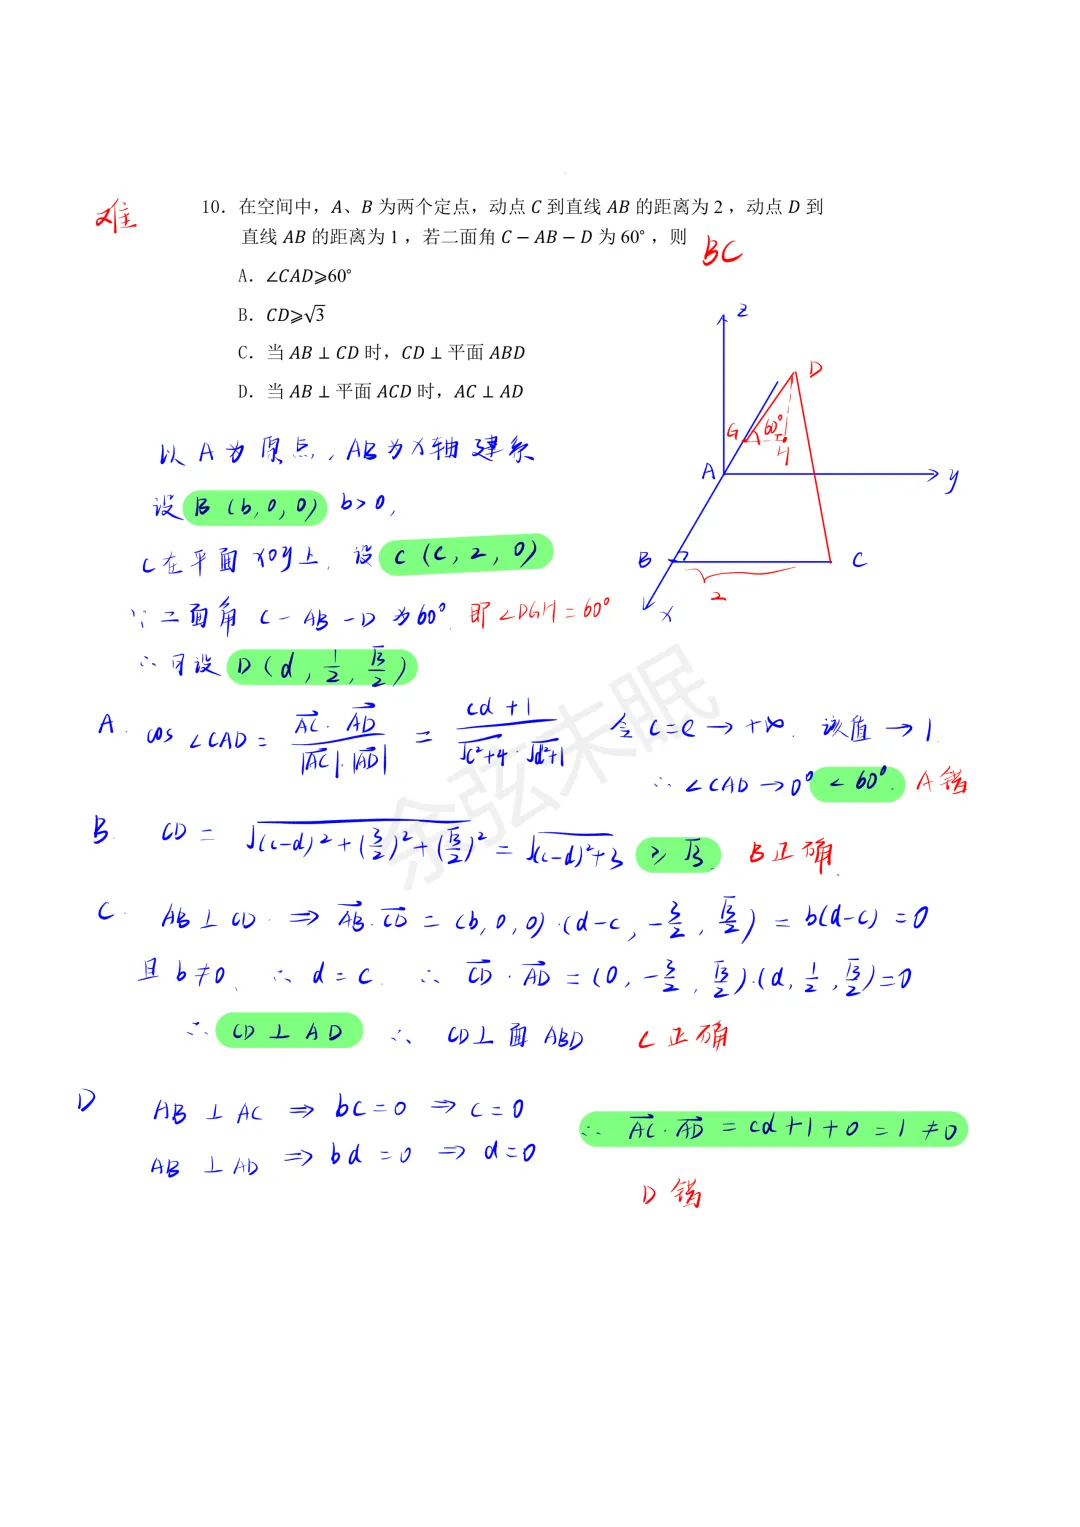 难
10．在空间中，A、B 为两个定点，动点 C 到直线 AB 的距离为 2，动点 D 到
直线 AB 的距离为 1，若二面角 C－AB－D 为 60°，则
BC
A．∠CAD⩾60°
B．CD⩾√3
C．当 AB⊥CD 时，CD⊥平面 ABD
D．当 AB⊥平面 ACD 时，AC⊥AD
z
D
G 60°
H
A
y
B
C
2
x
以 A 为原点，AB为x轴建系
设 B (b, 0, 0) b>0,
C在平面 xoy上. 设 C (c, 2, 0)
∵二面角 C-AB-D 为60°. 即∠DGH=60°
∴可设 D(d, 1/2, √3/2)
A. cos∠CAD = AC·AD / |AC|·|AD| = cd+1 / √c²+4·√d²+1 令 c=d→+∞. 该值→1.
∴∠CAD→0°<60°. A错
B. CD = √(c-d)²+(3/2)²+(√3/2)² = √(c-d)²+3 ⩾ √3. B正确.
C. AB⊥CD ⇒ AB·CD = (b, 0, 0)·(d-c, -3/2, √3/2) = b(d-c) = 0
且 b≠0. ∴ d=c. ∴ CD·AD = (0, -3/2, √3/2)·(d, 1/2, √3/2)=0
∴ CD⊥AD ∴ CD⊥面ABD C正确
D AB⊥AC ⇒ bc=0 ⇒ c=0
AB⊥AD ⇒ bd=0 ⇒ d=0
∴ AC·AD = cd+1+0=1≠0
D错
余弦未眠